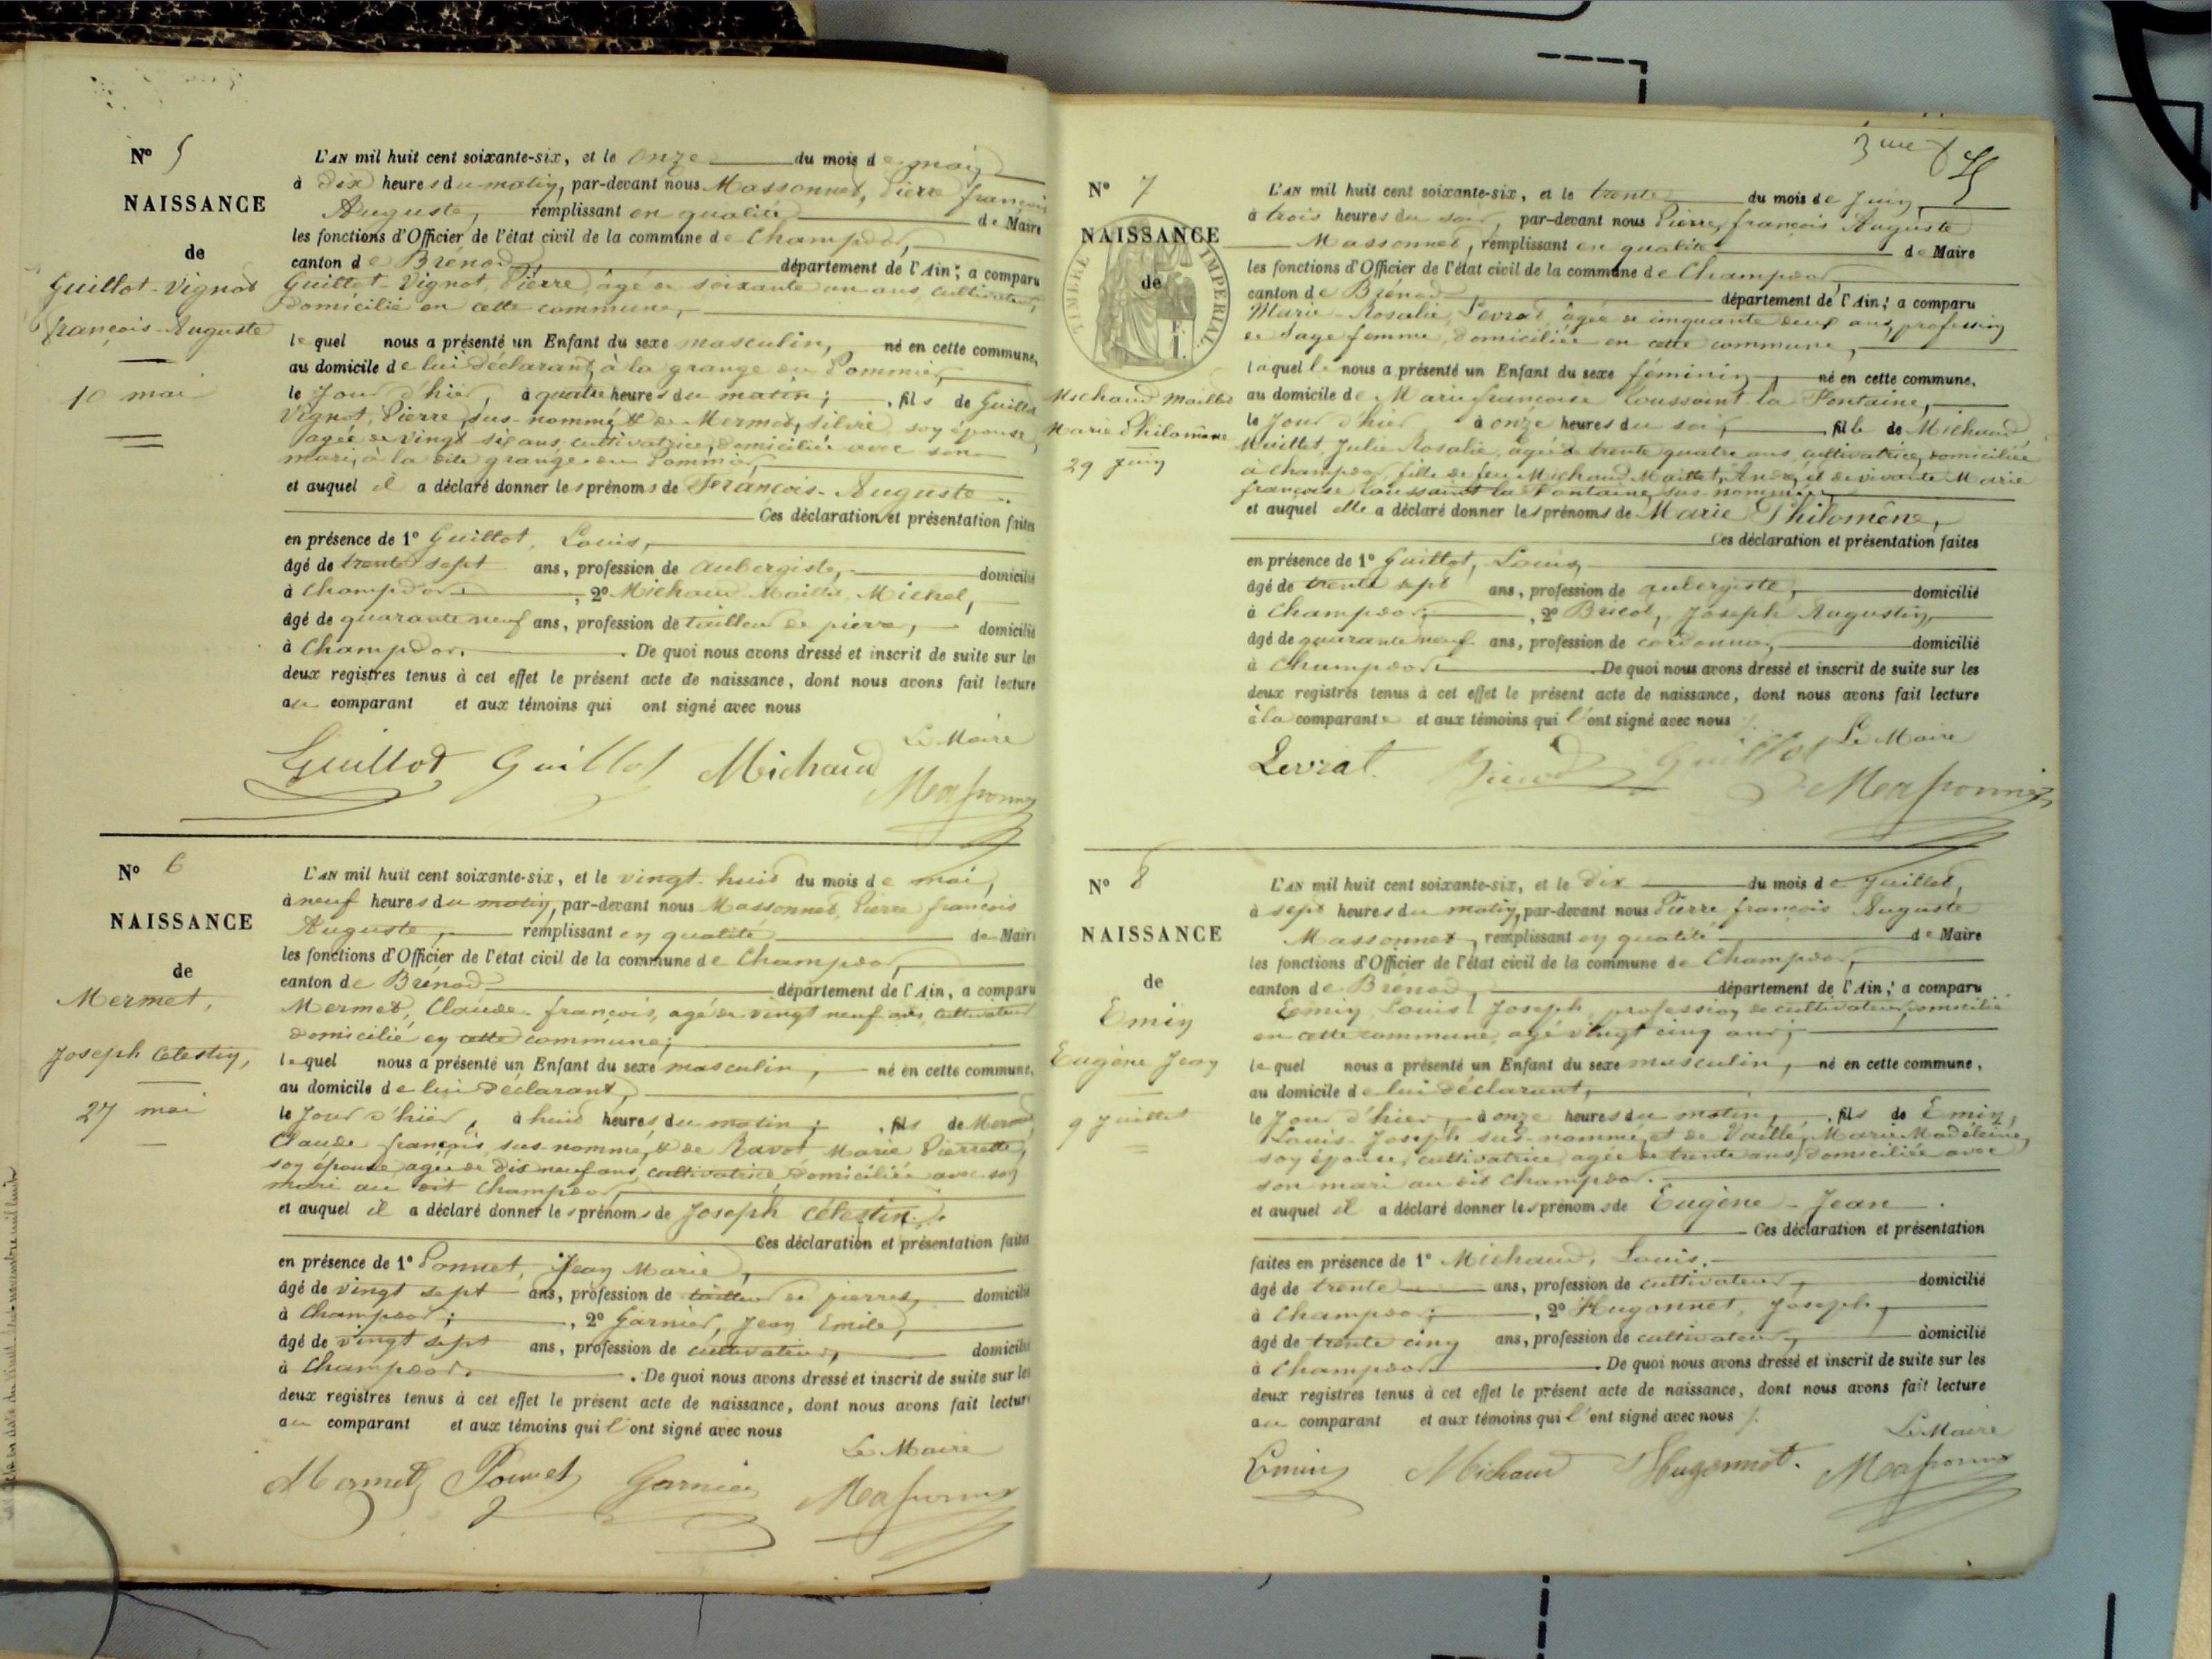 N° 5
NAISSANCE
de
Guillot-Vignot
françois-Auguste
10 mai
L'AN mil huit cent soixante-six, et le onze du mois de mai
à dix heures du matin, par-devant nous Massonnet, Pierre françois
Auguste, remplissant en qualité de Maire
les fonctions d'Officier de l'état civil de la commune de Champdor,
canton de Brénod département de l'Ain; a comparu
Guillot-Vignot, Pierre, agé de soixante un ans, cultivateur,
domicilié en cette commune,
lequel nous a présenté un Enfant du sexe masculin, né en cette commune,
au domicile de lui déclarant, à la grange du Pommier,
le jour d'hier, à quatre heures du matin; fils de Guillot
Vignot, Pierre, sus-nommé, & de Mermet, silvie, son épouse,
agée de vingt six ans, cultivatrice, domiciliée avec son
mari, à la dite grange du Pommier,
et auquel il a déclaré donner les prénoms de François-Auguste.
Ces déclaration et présentation faites
en présence de 1° Guillot, Louis,
âgé de trente sept ans, profession de aubergiste, domicilié
à Champdor, 2° Michaud Maillet, Michel,
âgé de quarante neuf ans, profession de tailleur de pierre, domicilié
à Champdor. De quoi nous avons dressé et inscrit de suite sur les
deux registres tenus à cet effet le présent acte de naissance, dont nous avons fait lecture
au comparant et aux témoins qui ont signé avec nous
Le Maire
Guillot Guillot Michaud
Massonnet
N° 6
NAISSANCE
de
Mermet,
Joseph Celestin,
27 mai
L'AN mil huit cent soixante-six, et le vingt-huit du mois de mai,
à neuf heures du matin, par-devant nous Massonnet, Pierre françois
Auguste, remplissant en qualité de Maire
les fonctions d'Officier de l'état civil de la commune de Champdor,
canton de Brénod département de l'Ain, a comparu
Mermet, Claude-françois, agé de vingt neuf ans, cultivateur
domicilié en cette commune;
lequel nous a présenté un Enfant du sexe masculin, né en cette commune,
au domicile de lui déclarant,
le jour d'hier, à huit heures du matin; fils de Mermet
Claude françois, sus-nommé, & de Ravot Marie Pierrette,
son épouse, agée de dix neuf ans, cultivatrice, domiciliée avec son
mari au dit Champdor,
et auquel il a déclaré donner les prénoms de Joseph Célestin.
Ces déclaration et présentation faites
en présence de 1° Ponnet, Jean Marie,
âgé de vingt sept ans, profession de tailleur de pierres, domicilié
à Champdor; 2° Garnier, Jean Emile,
âgé de vingt sept ans, profession de cultivateur, domicilié
à Champdor. De quoi nous avons dressé et inscrit de suite sur les
deux registres tenus à cet effet le présent acte de naissance, dont nous avons fait lecture
au comparant et aux témoins qui l'ont signé avec nous
Le Maire
Mermet Ponnet Garnier Massonnet
3me
N° 7
NAISSANCE
de
TIMBRE IMPERIAL
Michaud Maillet
Marie Philomène
29 Juin
L'AN mil huit cent soixante-six, et le trente du mois de Juin,
à trois heures du soir, par-devant nous Pierre, françois Auguste
Massonnet, remplissant en qualité de Maire
les fonctions d'Officier de l'état civil de la commune de Champdor,
canton de Brénod département de l'Ain; a comparu
Marie-Rosalie, Levrat, agée de cinquante deux ans, profession
de sage femme, domiciliée en cette commune,
laquelle nous a présenté un Enfant du sexe féminin, né en cette commune,
au domicile de Marie françoise Toussaint la Fontaine,
le jour d'hier à onze heures du soir, fille de Michaud
Maillet, Julie Rosalie, agée de trente quatre ans, cultivatrice, domiciliée
à Champdor, fille de feu Michaud Maillet, André, et de vivante Marie
françoise Toussaint la Fontaine, sus-nommée,
et auquel elle a déclaré donner les prénoms de Marie Philomène,
Ces déclaration et présentation faites
en présence de 1° Guillot, Louis,
âgé de trente sept ans, profession de aubergiste, domicilié
à Champdor; 2° Joseph Augustin,
âgé de quarante neuf ans, profession de cordonnier, domicilié
à Champdor. De quoi nous avons dressé et inscrit de suite sur les
deux registres tenus à cet effet le présent acte de naissance, dont nous avons fait lecture
à la comparante et aux témoins qui l'ont signé avec nous
Le Maire
Levrat Guillot Massonnet
N° 8
NAISSANCE
de
Emin
Eugène Jean
9 juillet
L'AN mil huit cent soixante-six, et le dix du mois de Juillet,
à sept heures du matin, par-devant nous Pierre françois Auguste
Massonnet, remplissant en qualité de Maire
les fonctions d'Officier de l'état civil de la commune de Champdor,
canton de Brénod, département de l'Ain; a comparu
Emin, Louis Joseph, profession de cultivateur, domicilié
en cette commune, agé vingt cinq ans,
lequel nous a présenté un Enfant du sexe masculin, né en cette commune,
au domicile de lui déclarant,
le jour d'hier, à onze heures du matin, fils de Emin,
Louis-Joseph sus-nommé, et de Vaillé, Marie Madeleine,
son épouse, cultivatrice, agée de trente ans, domiciliée avec
son mari au dit Champdor.
et auquel il a déclaré donner les prénoms de Eugène-Jean.
Ces déclaration et présentation
faites en présence de 1° Michaud, Louis.
âgé de trente ans, profession de cultivateur, domicilié
à Champdor; 2° Hugonnet, Joseph,
âgé de trente cinq ans, profession de cultivateur, domicilié
à Champdor. De quoi nous avons dressé et inscrit de suite sur les
deux registres tenus à cet effet le présent acte de naissance, dont nous avons fait lecture
au comparant et aux témoins qui l'ont signé avec nous
Le Maire
Emin Michaud Hugonnet. Massonnet